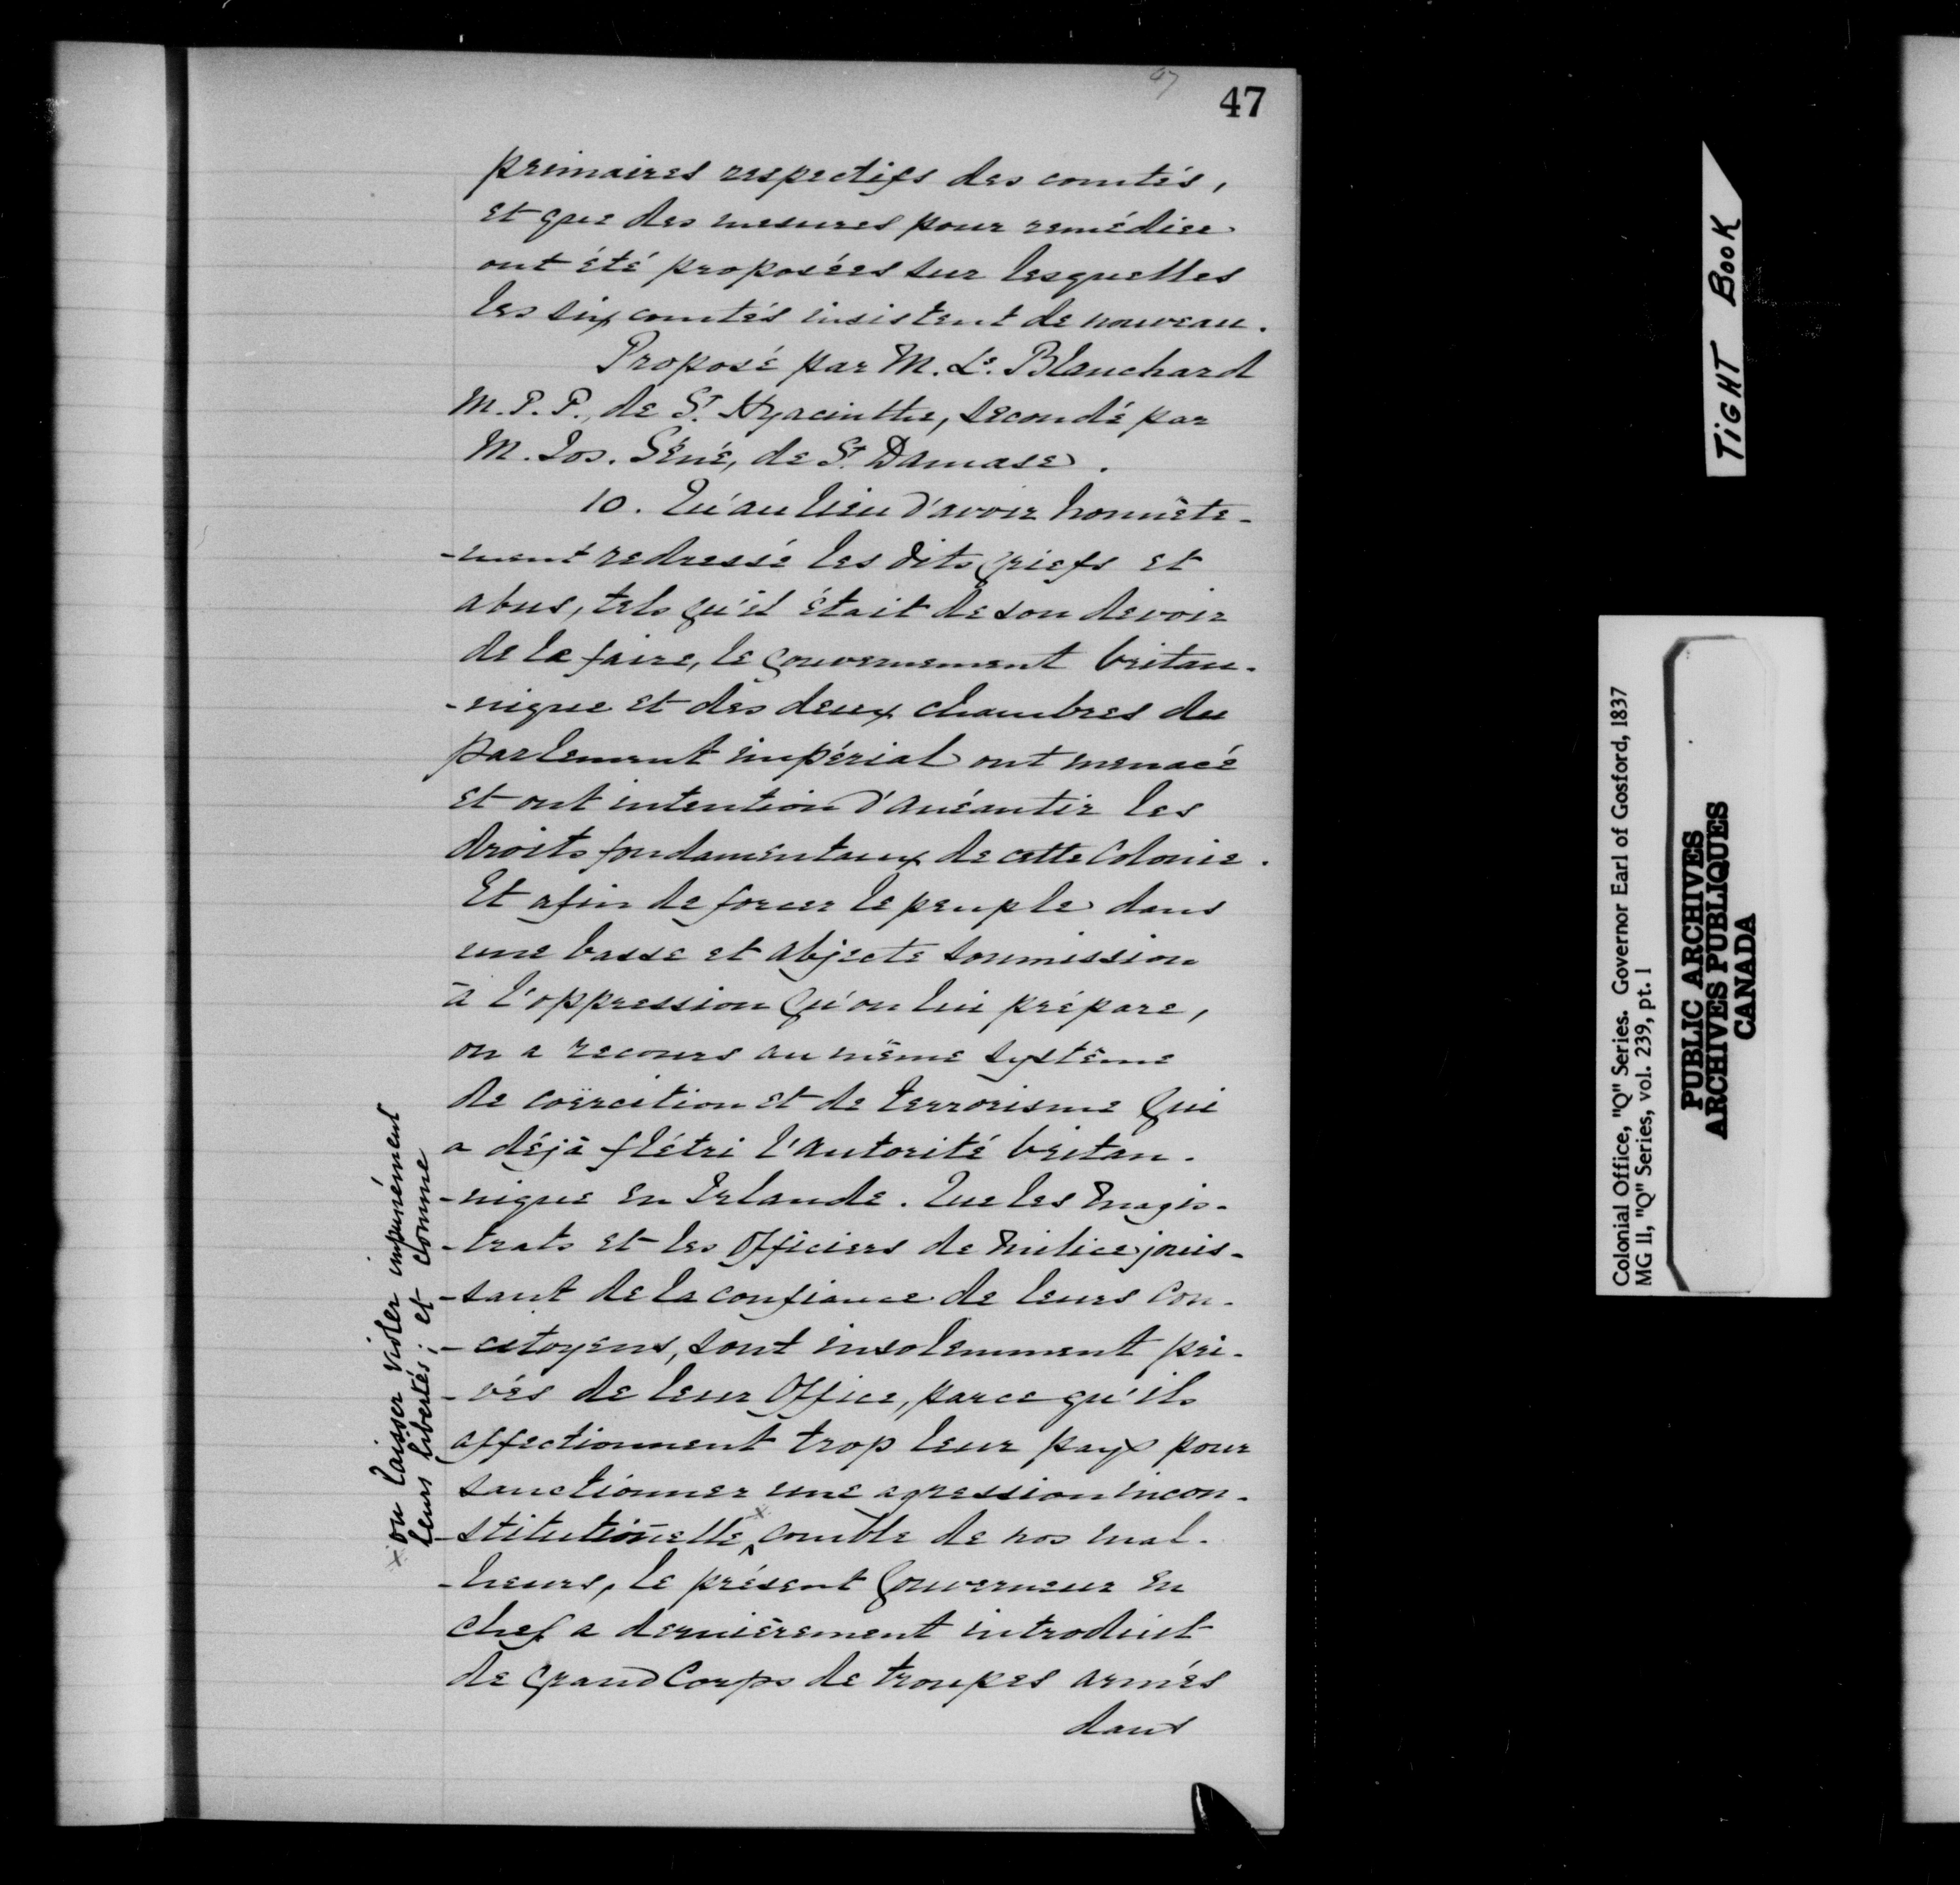 47
47
primaires respectifs des comtés,
et que des mesures pour remédier
ont été proposées sur lesquelles
les six comtés insistent de nouveau.
Proposé par M. Ls. Blanchard
M.P.P., de St. Hyacinthe, secondé par
M. Jos. Séné, de St. Damase.
10. Qu'au lieu d'avoir honnête-
-ment redressé les dits griefs et
abus, tels qu'il était de son devoir
de le faire, le gouvernement britan-
-nique et des deux chambres du
parlement impérial ont menacé
et ont intention d'anéantir les
droits fondamentaux de cette Colonie.
Et afin de forcer le peuple dans
une basse et abjecte soumission
à l'oppression qu'on lui prépare,
on a recours au même système
de coërcition et de terrorisme qui
a déjà flétri l'autorité britan-
-nique en Irlande. Que les Magis-
-trats et les Officiers de Milice jouis-
-sant de la confiance de leurs con-
-citoyens, sont insolemment pri-
-vés de leur Office, parce qu'ils
affectionnent trop leur pays pour
sanctionner une agression incon-
-stitutionelle, x comble de nos mal-
-heurs, le présent Gouverneur en
chef a dernièrement introduit
de grand Corps de troupes armés
dans
x ou laisser violer impunément
leurs libertés; et comme
TIGHT BOOK
Colonial Office, "Q" Series. Governor Earl of Gosford, 1837
MG 11, "Q" Series, vol. 239, pt. 1
PUBLIC ARCHIVES
ARCHIVES PUBLIQUES
CANADA